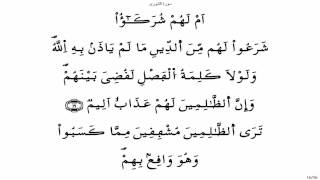 سورة الشورى
أَمْ لَهُمْ شُرَكَـٰٓؤُا۟
شَرَعُوا۟ لَهُم مِّنَ ٱلدِّينِ مَا لَمْ يَأْذَنۢ بِهِ ٱللَّهُ ۚ
وَلَوْلَا كَلِمَةُ ٱلْفَصْلِ لَقُضِىَ بَيْنَهُمْ ۗ
وَإِنَّ ٱلظَّـٰلِمِينَ لَهُمْ عَذَابٌ أَلِيمٌ ﴿٢١﴾
تَرَى ٱلظَّـٰلِمِينَ مُشْفِقِينَ مِمَّا كَسَبُوا۟
وَهُوَ وَاقِعٌۢ بِهِمْ ۗ